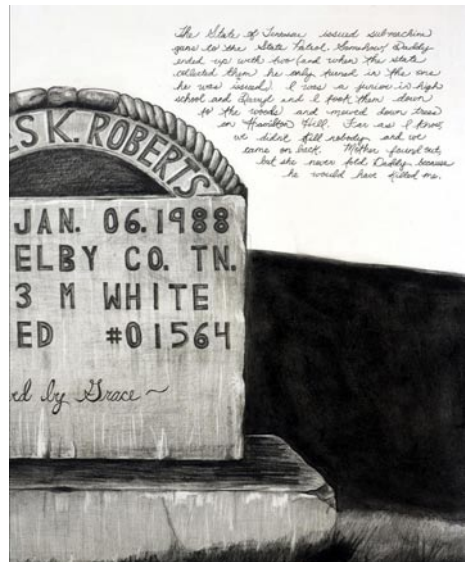 The State of Tennessee issued submachine
guns to the State Patrol. Somehow, Daddy
ended up with two (and when the state
collected them he only turned in the one
he was issued). I was a junior in high
school and Darryl and I took them down
to the woods and mowed down trees
on Hamilton Hill. Far as I know,
we didn't kill nobody and we
came on back. Mother found out,
but she never told Daddy because
he would have killed me.
S K. ROBERTS
JAN. 06.1988
ELBY CO. TN.
3 M WHITE
ED #01564
rd by Grace~